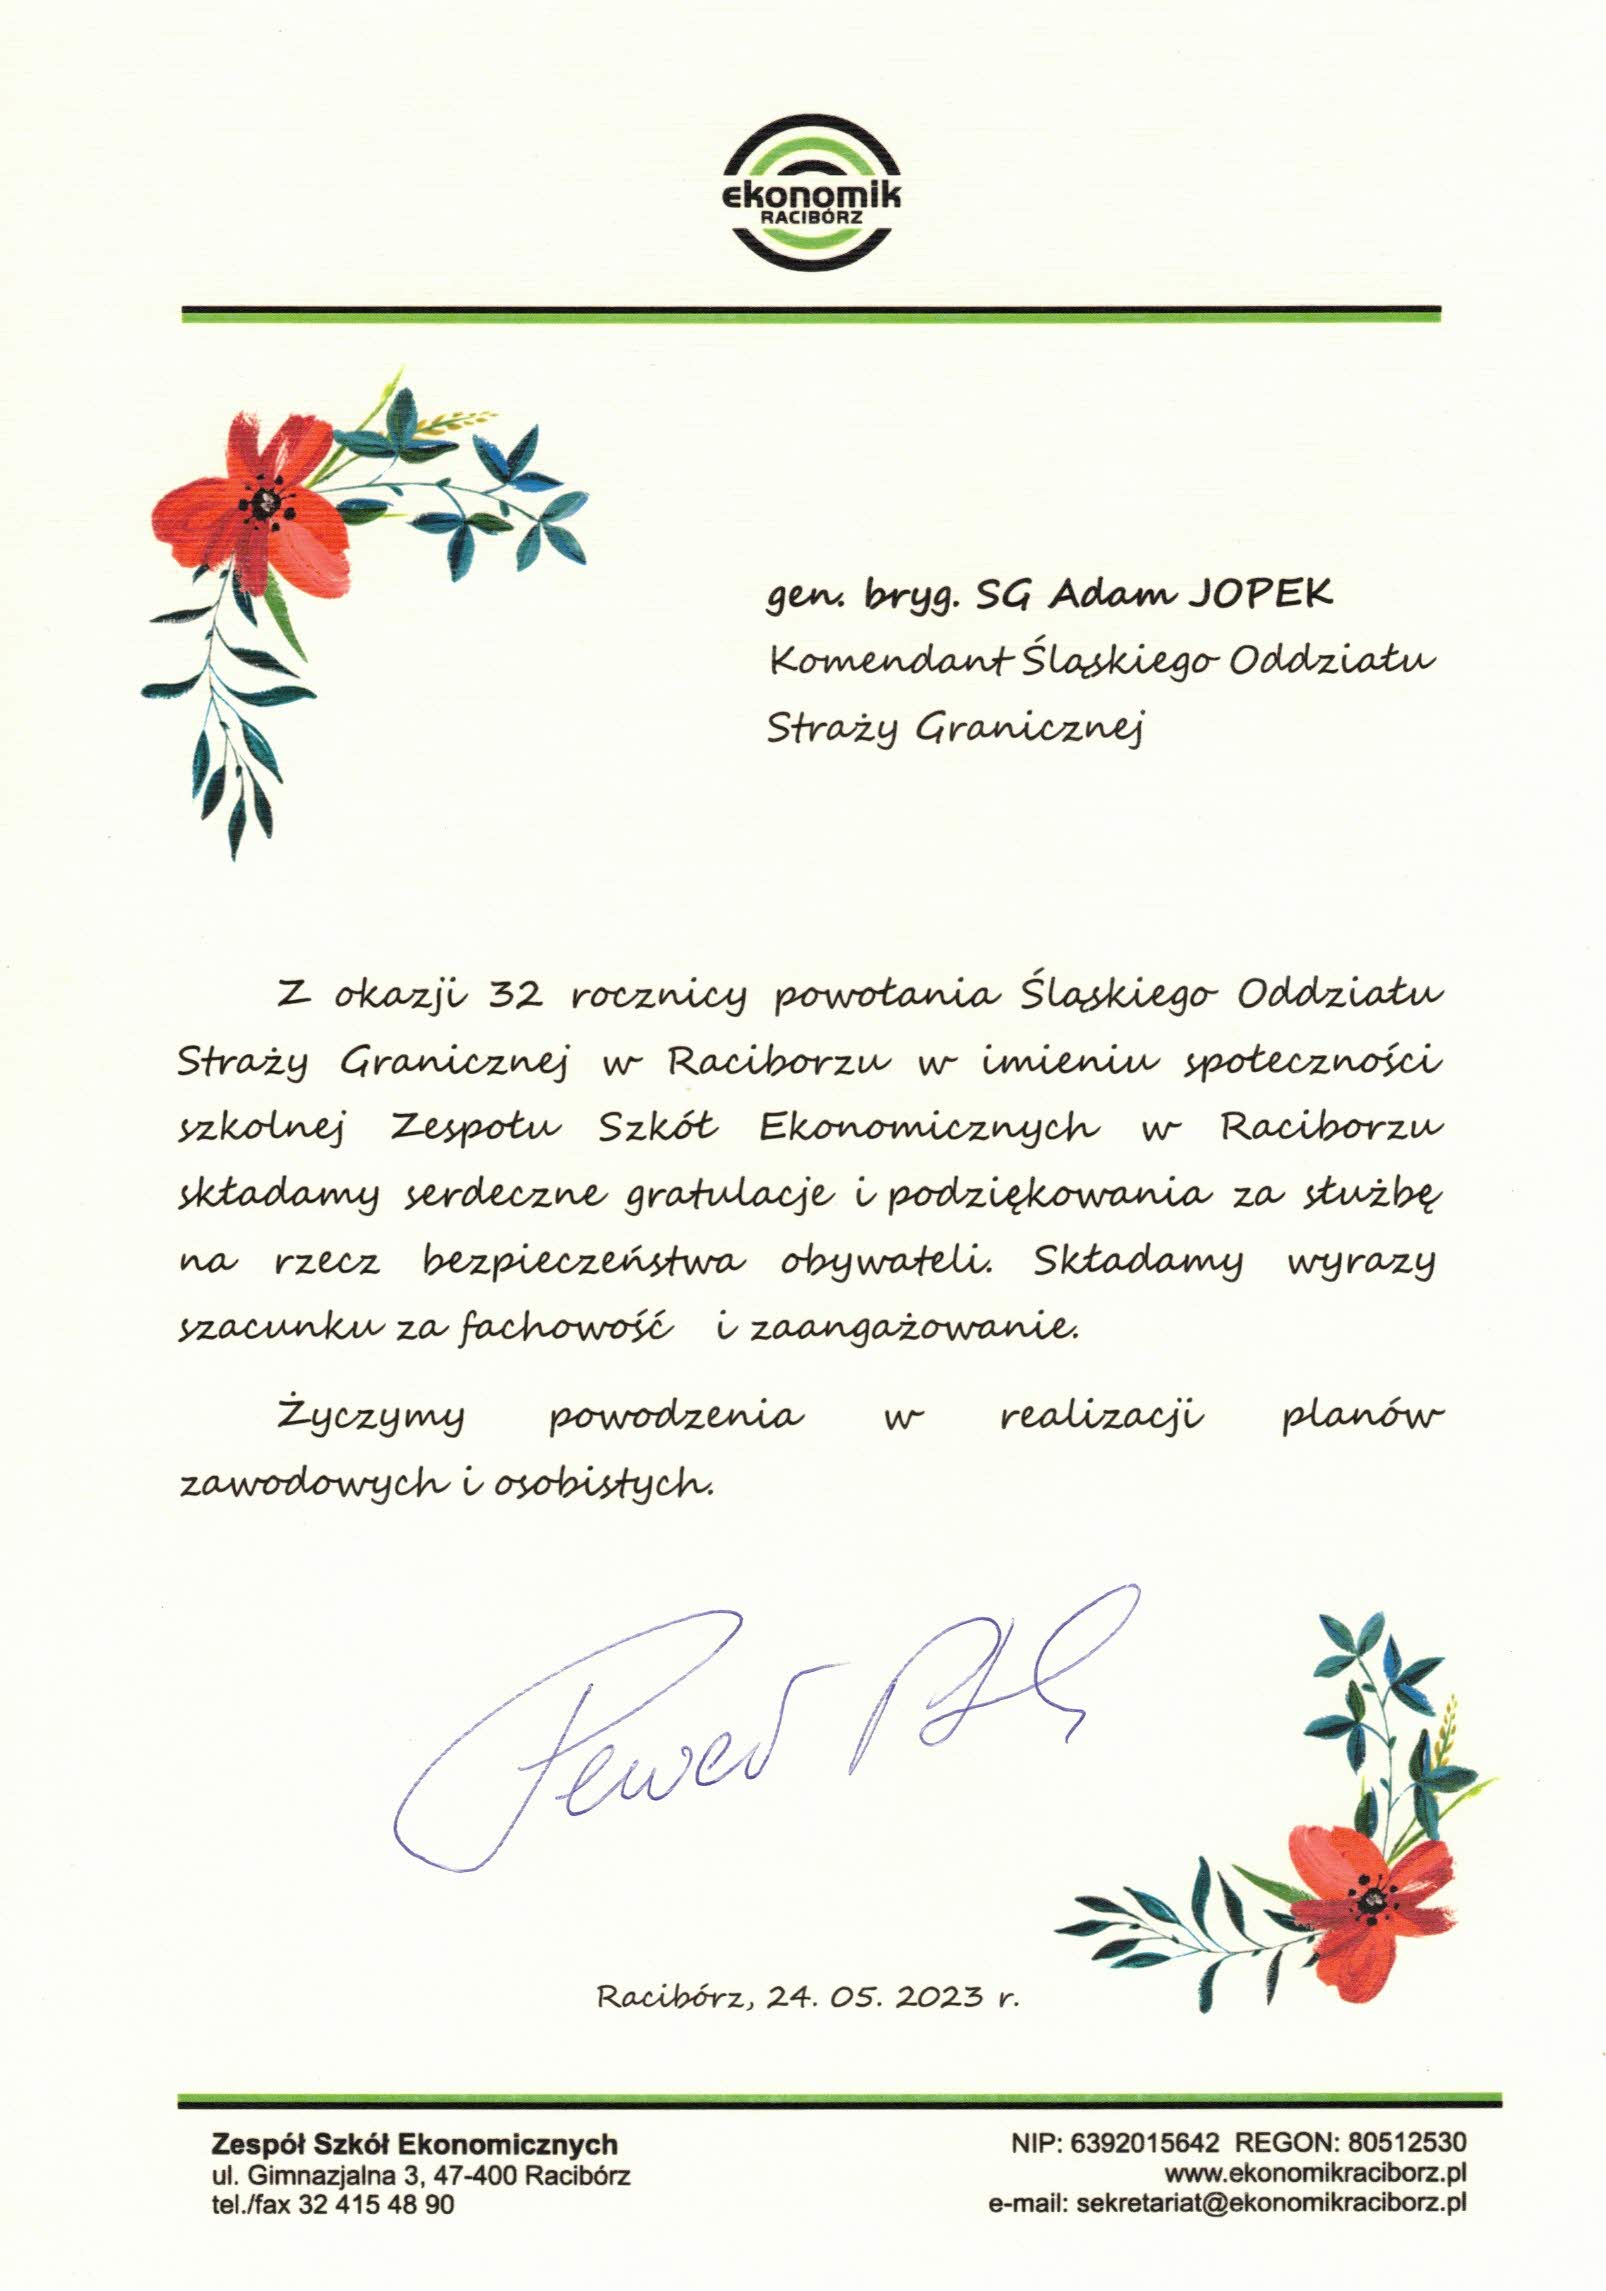 ekonomik
RACIBÓRZ
gen. bryg. SG Adam JOPEK
Komendant Śląskiego Oddziału
Straży Granicznej
Z okazji 32 rocznicy powołania Śląskiego Oddziału
Straży Granicznej w Raciborzu w imieniu społeczności
szkolnej Zespołu Szkół Ekonomicznych w Raciborzu
składamy serdeczne gratulacje i podziękowania za służbę
na rzecz bezpieczeństwa obywateli. Składamy wyrazy
szacunku za fachowość i zaangażowanie.
Życzymy powodzenia w realizacji planów
zawodowych i osobistych.
Racibórz, 24. 05. 2023 r.
Zespół Szkół Ekonomicznych
ul. Gimnazjalna 3, 47-400 Racibórz
tel./fax 32 415 48 90
NIP: 6392015642 REGON: 80512530
www.ekonomikraciborz.pl
e-mail: sekretariat@ekonomikraciborz.pl